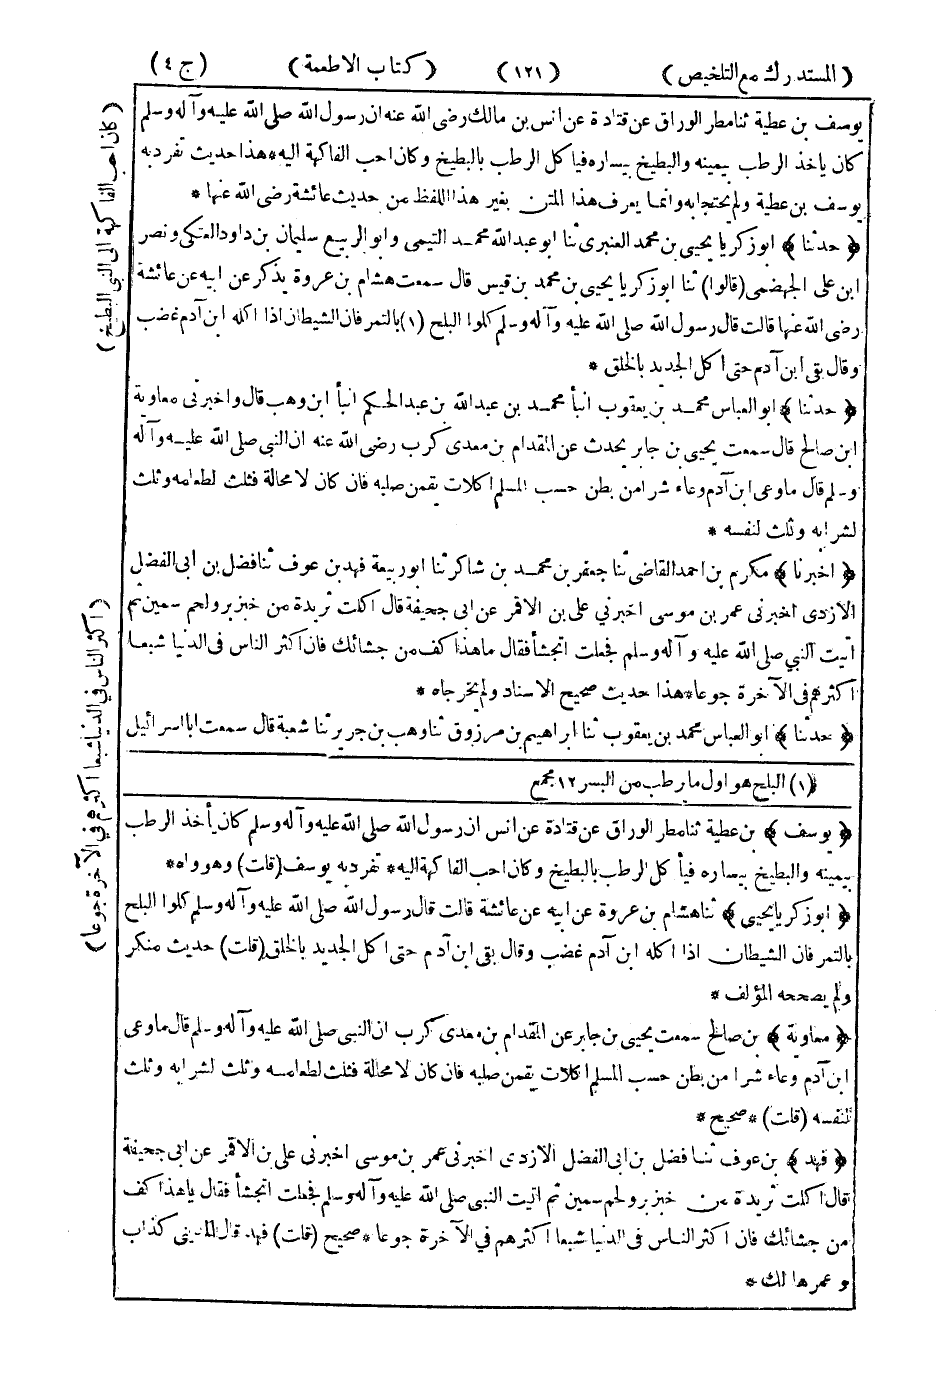 (المستدرك مع التلخيص) (١٢١) (كتاب الاطعمة) (ج ٤)
يوسف بن عطية ثنا مطر الوراق عن قتادة عن انس بن مالك رضى الله عنه ان رسول الله صلى الله عليه وآله وسلم
كان ياخذ الرطب بيمينه والبطيخ بيساره فيا كل الرطب بالبطيخ وكان احب الفاكهة اليه * هذا حديث تفرد به
يوسف بن عطية ولم يحتجا به وانما يعرف هذا المتن بغير هذا اللفظ من حديث عائشة رضى الله عنها *
﴿ حدثنا ﴾ ابو زكريا يحيى بن محمد العنبرى ثنا ابو عبد الله محمد التيمى وابو الربيع سليمان بن داود العتكى ونصر
ابن على الجهضمى (قالوا) ثنا ابو زكريا يحيى بن محمد بن قيس قال سمعت هشام بن عروة يذكر عن ابيه عن عائشة
رضى الله عنها قالت قال رسول الله صلى الله عليه وآله وسلم كلوا البلح (١) بالتمر فان الشيطان اذا اكله ابن آدم غضب
وقال بقى ابن آدم حتى اكل الجديد بالخلق *
﴿ حدثنا ﴾ ابو العباس محمد بن يعقوب انبأ محمد بن عبد الله بن عبد الحكم انبأ ابن وهب قال واخبرنى معاوية
ابن صالح قال سمعت يحيى بن جابر يحدث عن المقدام بن معدى كرب رضى الله عنه ان النبى صلى الله عليه وآله
وسلم قال ما وعى ابن آدم وعاء شرا من بطن حسب المسلم اكلات يقمن صلبه فان كان لا محالة فثلث لطعامه وثلث
لشرابه وثلث لنفسه *
﴿ اخبرنا ﴾ مكرم بن احمد القاضى ثنا جعفر بن محمد بن شاكر ثنا ابو ربيعة فهد بن عوف ثنا فضل بن ابى الفضل
الازدى اخبرنى عمر بن موسى اخبرني على بن الاقمر عن ابى جحيفة قال اكلت ثريدة من خبز بر ولحم سمين ثم
اتيت النبي صلى الله عليه وآله وسلم فجعلت اتجشأ فقال ما هذا كف من جشائك فان اكثر الناس فى الدنيا شبعا
اكثرهم فى الآخرة جوعا * هذا حديث صحيح الاسناد ولم يخرجاه *
﴿ حدثنا ﴾ ابو العباس محمد بن يعقوب ثنا ابراهيم بن مرزوق ثنا وهب بن جرير ثنا شعبة قال سمعت ابا اسرائيل
(١) البلح هو اول ما يرطب من البسر ١٢ مجمع
﴿ يوسف ﴾ بن عطية ثنا مطر الوراق عن قتادة عن انس ان رسول الله صلى الله عليه وآله وسلم كان يأخذ الرطب
بيمينه والبطيخ بيساره فيأ كل الرطب بالبطيخ وكان احب الفاكهة اليه * تفرد به يوسف (قلت) وهو واه *
﴿ ابو زكريا يحيى ﴾ ثنا هشام بن عروة عن ابيه عن عائشة قالت قال رسول الله صلى الله عليه وآله وسلم كلوا البلح
بالتمر فان الشيطان اذا اكله ابن آدم غضب وقال بقى ابن آدم حتى اكل الجديد بالخلق (قلت) حديث منكر
ولم يصححه المؤلف *
﴿ معاوية ﴾ بن صالح سمعت يحيى بن جابر عن المقدام بن معدى كرب ان النبى صلى الله عليه وآله وسلم قال ما وعى
ابن آدم وعاء شرا من بطن حسب المسلم اكلات يقمن صلبه فان كان لا محالة فثلث لطعامه وثلث لشرابه وثلث
لنفسه (قلت) * صحيح *
﴿ فهد ﴾ بن عوف ثنا فضل بن ابى الفضل الازدى اخبرنى عمر بن موسى اخبرنى على بن الاقمر عن ابى جحيفة
قال اكلت ثريدة من خبز بر ولحم سمين ثم اتيت النبى صلى الله عليه وآله وسلم فجعلت اتجشأ فقال يا هذا كف
من جشائك فان اكثر الناس فى الدنيا شبعا اكثرهم في الآخرة جوعا * صحيح (قلت) فهد قال المدينى كذاب
وعمر هالك *
(كان احب الفاكهة الى النبى البطيخ)
(اكثر الناس فى الدنيا شبعا اكثرهم في الآخرة جوعا)